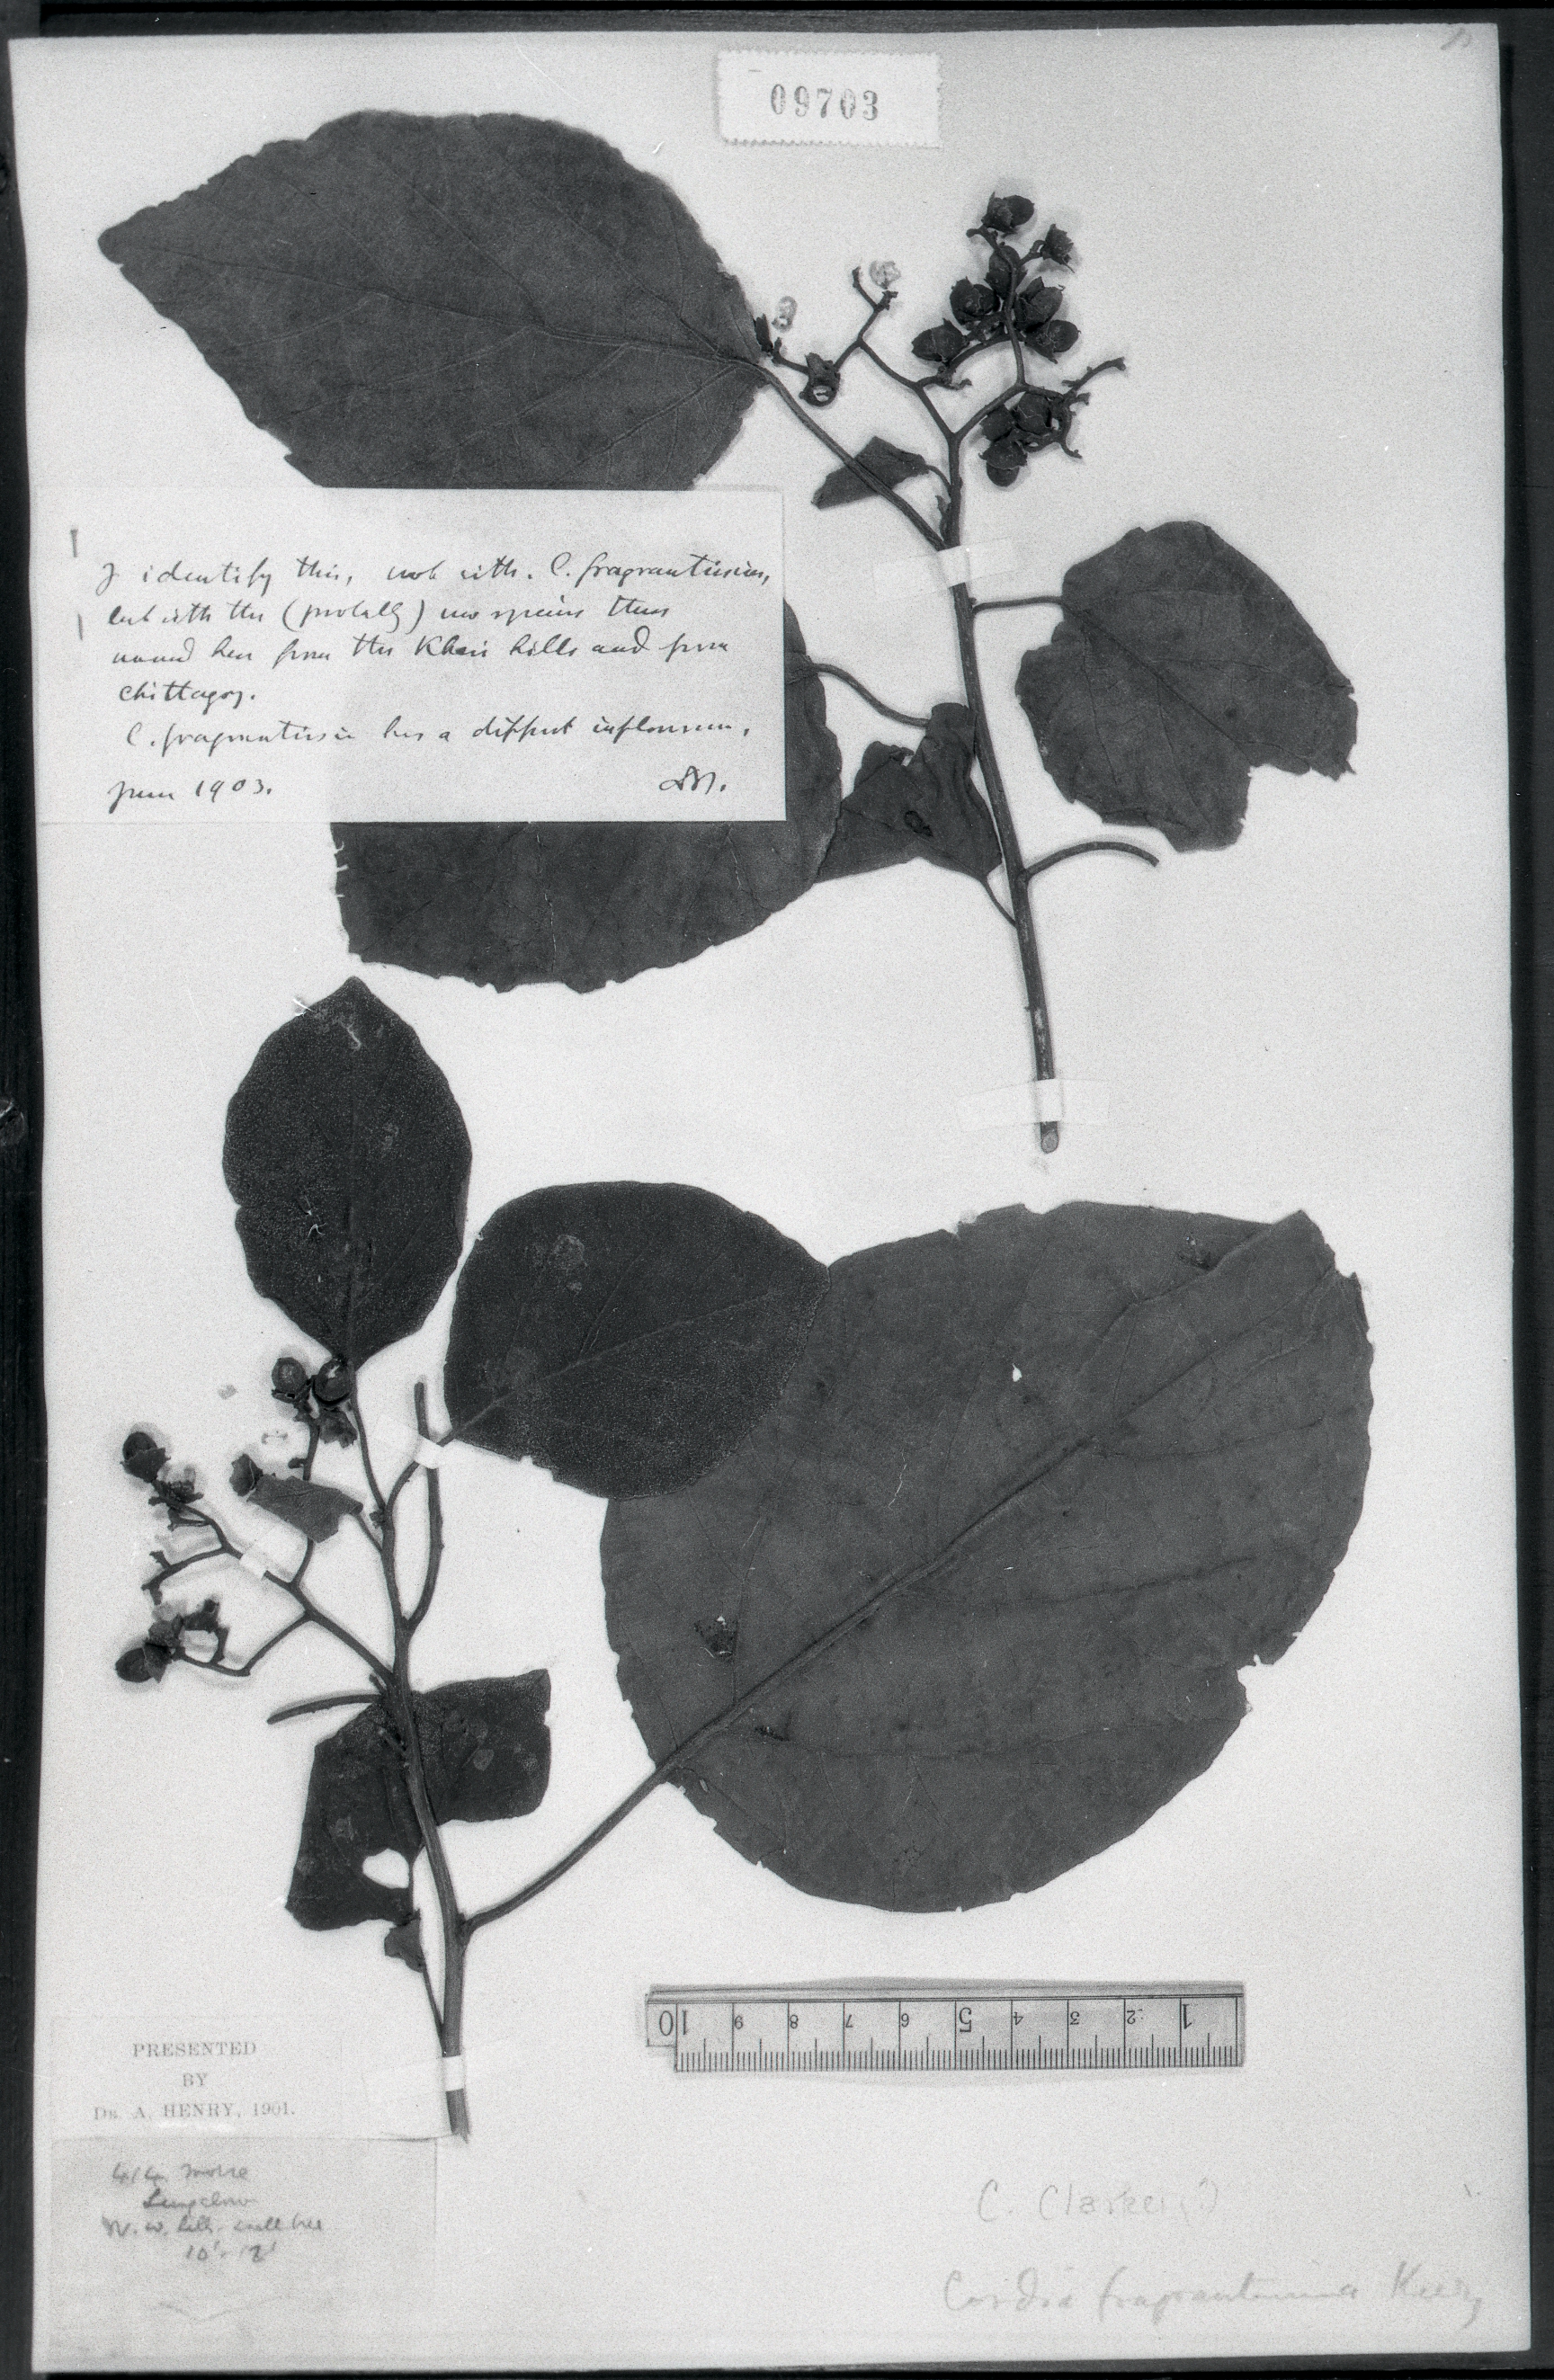 09703
I identify this, not with C. fragrantissima,
but with the (probably) new species thus
named here from the Khasi hills and from
Chittagong.
C. fragrantissima has a different inflorescence.
June 1903.
PRESENTED
BY
DR. A. HENRY, 1901.
414. Morse
Lungchow
N. W. hills. small tree
10'-12'
10 9 8 7 6 5 4 3 2 1
C. Clarkei (?)
Cordia fragrantissima Kurz